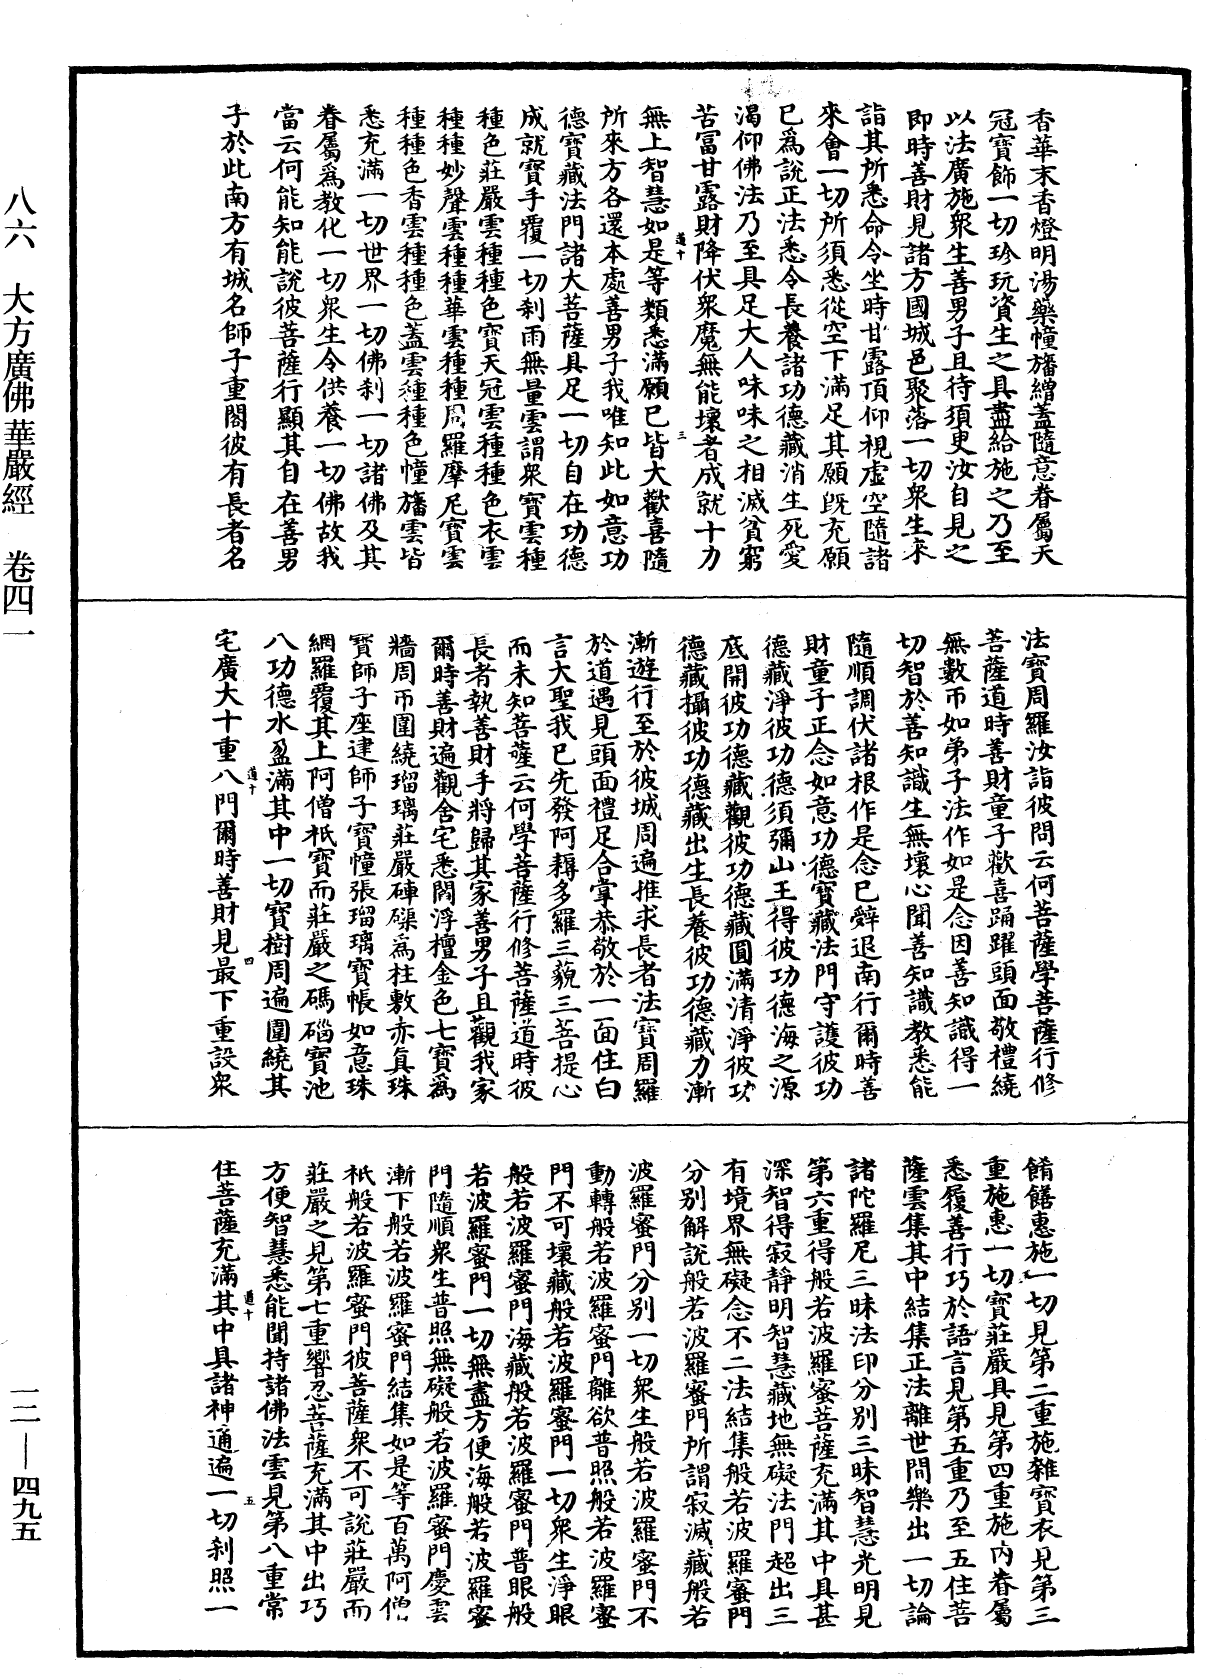 八六　大方廣佛華嚴經　卷四一
一二—四九五
香華末香燈明湯藥幢旛繒蓋隨意眷屬天
冠寶飾一切珍玩資生之具盡給施之乃至
以法廣施衆生善男子且待須㬰汝自見之
即時善財見諸方國城邑聚落一切衆生來
詣其所悉命令坐時甘露頂仰視虛空隨諸
來會一切所須悉從空下滿足其願旣充願
已爲說正法悉令長養諸功德藏消生死愛
渴仰佛法乃至具足大人味味之相滅貧窮
苦冨甘露財降伏衆魔無能壞者成就十力
道十　三
無上智慧如是等類悉滿願已皆大歡喜隨
所來方各還本處善男子我唯知此如意功
德寶藏法門諸大菩薩具足一切自在功德
成就寶手覆一切刹雨無量雲謂衆寶雲種
種色莊嚴雲種種色寶天冠雲種種色衣雲
種種妙聲雲種種華雲種種周羅摩尼寶雲
種種色香雲種種色蓋雲種種色幢旛雲皆
悉充滿一切世界一切佛刹一切諸佛及其
眷屬爲教化一切衆生令供養一切佛故我
當云何能知能說彼菩薩行顯其自在善男
子於此南方有城名師子重閣彼有長者名
法寶周羅汝詣彼問云何菩薩學菩薩行修
菩薩道時善財童子歡喜踊躍頭面敬禮繞
無數帀如弟子法作如是念因善知識得一
切智於善知識生無壞心聞善知識教悉能
隨順調伏諸根作是念已辤退南行爾時善
財童子正念如意功德寶藏法門守護彼功
德藏淨彼功德須彌山王得彼功德海之源
底開彼功德藏觀彼功德藏圓滿清淨彼功
德藏攝彼功德藏出生長養彼功德藏力漸
漸遊行至於彼城周遍推求長者法寶周羅
於道遇見頭面禮足合掌恭敬於一面住白
言大聖我已先發阿耨多羅三藐三菩提心
而未知菩薩云何學菩薩行修菩薩道時彼
長者執善財手將歸其家善男子且觀我家
爾時善財遍觀舍宅悉閻浮檀金色七寶爲
牆周帀圍繞瑠璃莊嚴硨磲爲柱敷赤真珠
寶師子座建師子寶幢張瑠璃寶帳如意珠
網羅覆其上阿僧祇寶而莊嚴之碼碯寶池
八功德水盈滿其中一切寶樹周遍圍繞其
宅廣大十重八門爾時善財見最下重設衆
道十　四
餚饍惠施一切見第二重施雜寶衣見第三
重施惠一切寶莊嚴具見第四重施内眷屬
悉履善行巧於語言見第五重乃至五住菩
薩雲集其中結集正法離世間樂出一切論
諸陀羅尼三昧法印分别三昧智慧光明見
第六重得般若波羅蜜菩薩充滿其中具甚
深智得寂靜明智慧藏地無礙法門超出三
有境界無礙念不二法結集般若波羅蜜門
分别解說般若波羅蜜門所謂寂滅藏般若
波羅蜜門分别一切衆生般若波羅蜜門不
動轉般若波羅蜜門離欲普照般若波羅蜜
門不可壞藏般若波羅蜜門一切衆生淨眼
般若波羅蜜門海藏般若波羅蜜門普眼般
若波羅蜜門一切無盡方便海般若波羅蜜
門隨順衆生普照無礙般若波羅蜜門慶雲
漸下般若波羅蜜門結集如是等百萬阿僧
祇般若波羅蜜門彼菩薩衆不可說莊嚴而
莊嚴之見第七重響忍菩薩充滿其中出巧
方便智慧悉能聞持諸佛法雲見第八重常
住菩薩充滿其中具諸神通遍一切刹照一
道十　五